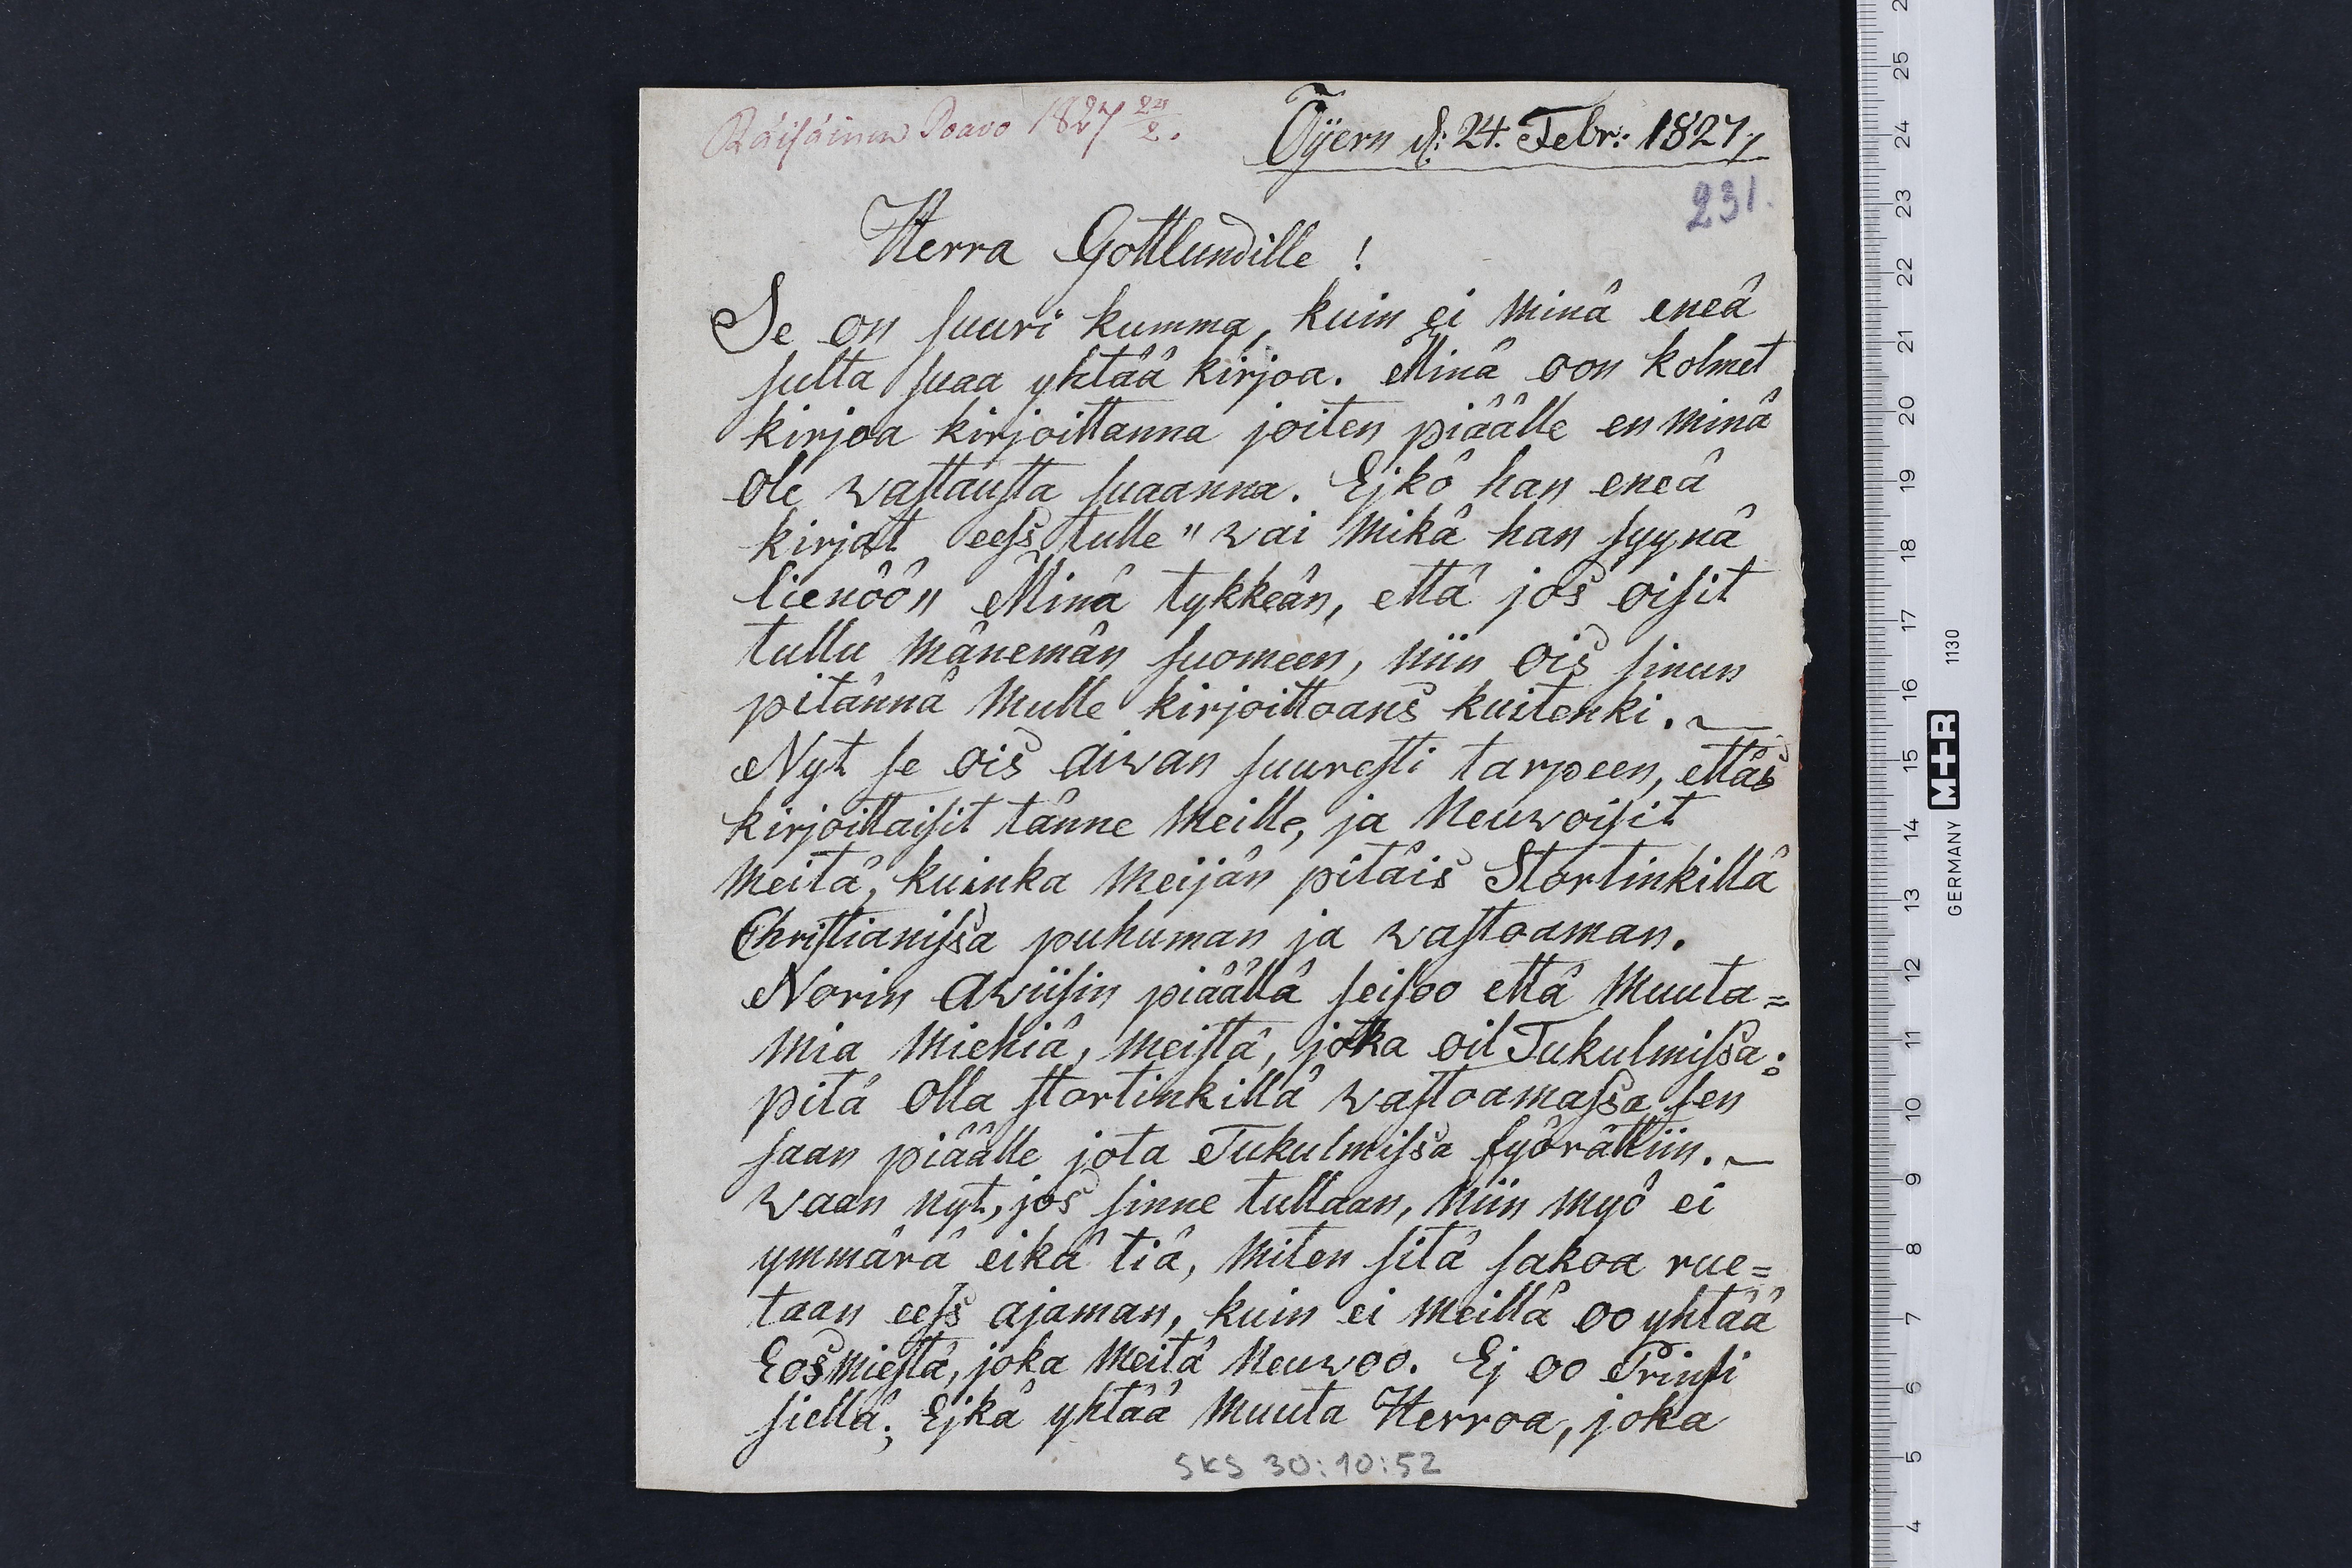 Räisäinen Poavo 1827 24/2.
Öijern d: 24. Febr: 1827,
231.
Herra Gottlundille !
Se on suuri kumma, kuin ei minä eneä
sulta suaa yhtää kirjoa. Minä oon kolmet
kirjoa kirjoittanna joiten piäälle en minä
ole wastausta suaanna. Ejkö han eneä
kirjat eess tulle" wai mikä han syynä
lienöö" Minä tykkeän, että jos oisit
tullu mänemän suomeen, niin ois sinun
pitännä mulle kirjoittoans kuitenki. ~
Nyt se ois aiwan suuresti tarpeen, ettäs
kirjoittaisit tänne meille, ja neuwoisit
meitä, kuinka meijän pitäis Stortinkillä
Christianissa puhuman ja wastoaman.
Norin awiisin piäällä seisoo että muuta=
mia miehiä, meistä, jotka oil Tukulmissa:
pitä olla stortinkillä wastoamassa sen
saan piäälle jota Tukulmissa syörättiin. ~
waan nyt, jos sinne tullaan, niin myö ei
ymmärä eikä tiä, miten sitä sakoa rue=
taan eess ajaman, kuin ei meillä oo yhtää
Eosmiestä, joka meitä neuwoo. Ej oo Prinsi
siellä; Ejkä yhtää muuta Herroa, joka
SKS 30:10:52
25
24
23
22
21
20
19
18
17
16
15
14
13
12
11
10
9
8
7
6
5
4
GERMANY M+R 1130